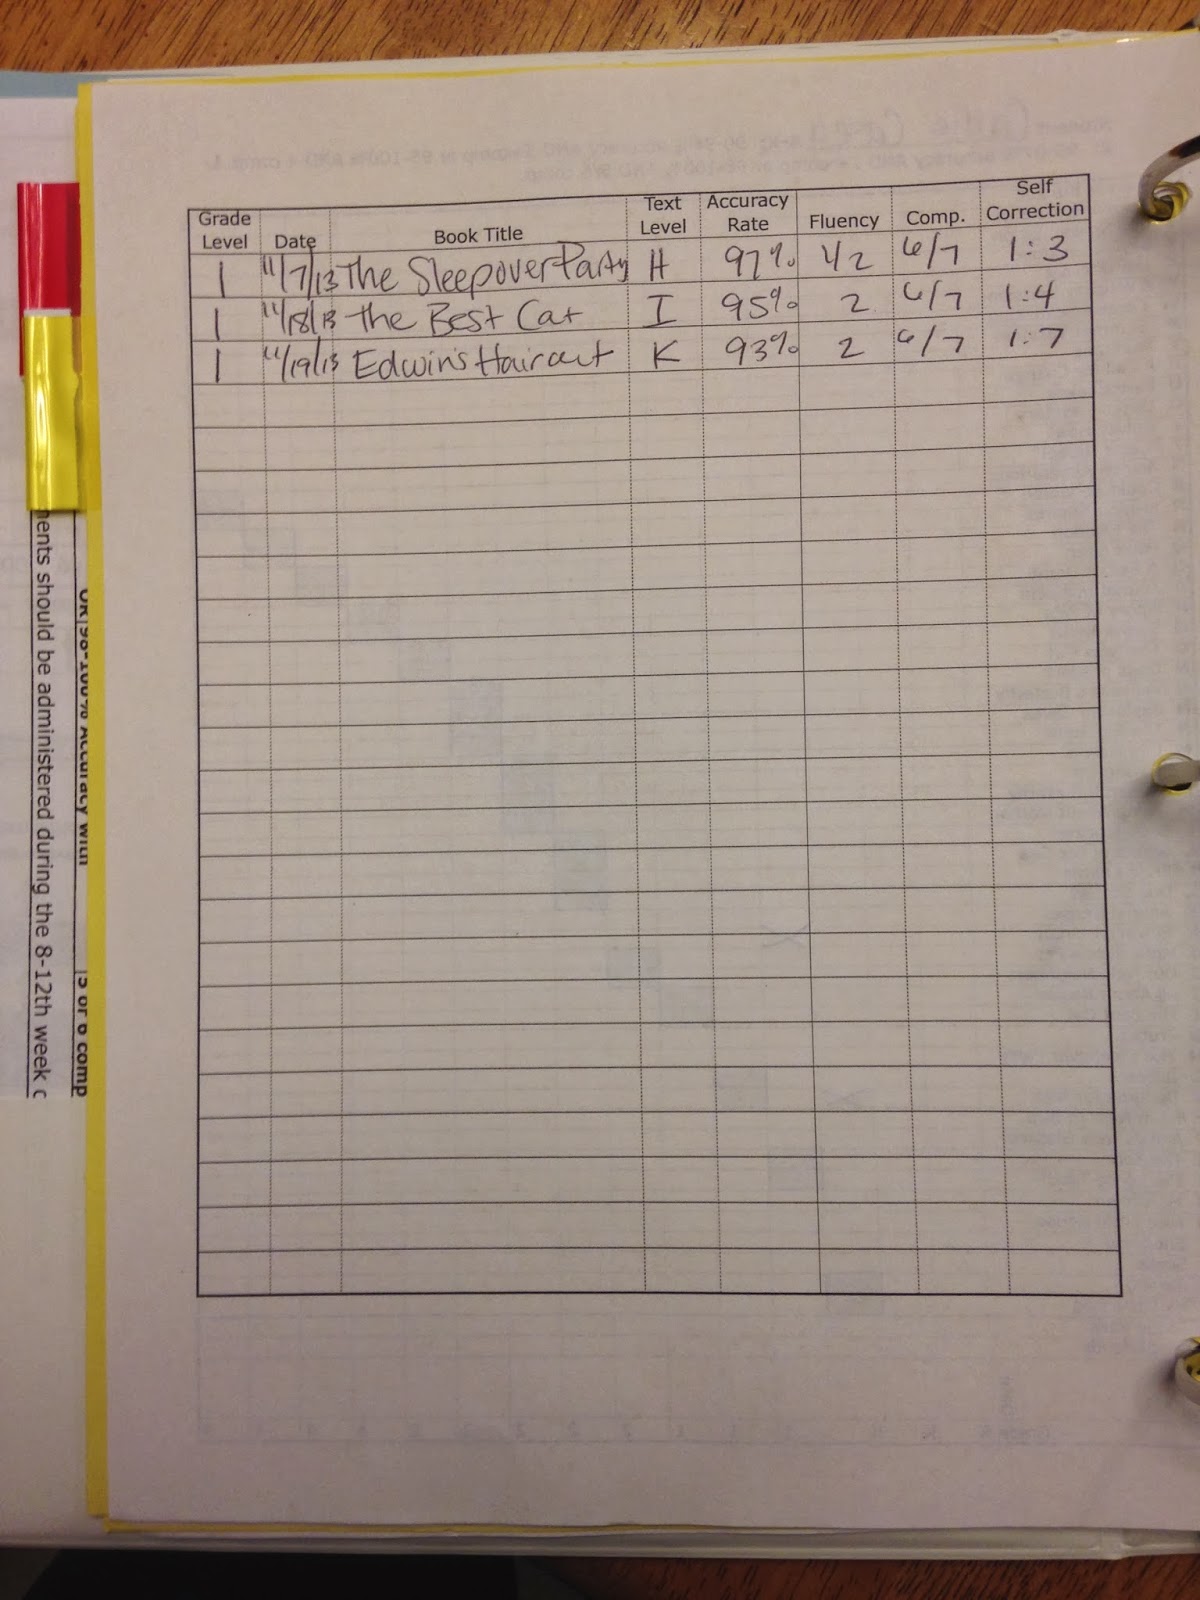 Grade Level Date Book Title Text Level Accuracy Rate Fluency Comp. Self Correction
1 11/7/13 The Sleepover Party H 97% 1/2 6/7 1:3
1 11/18/13 The Best Cat I 95% 2 6/7 1:4
1 11/19/13 Edwin's Haircut K 93% 2 6/7 1:7
OR 98-100% Accuracy with 5 or 6 comp
ents should be administered during the 8-12th week